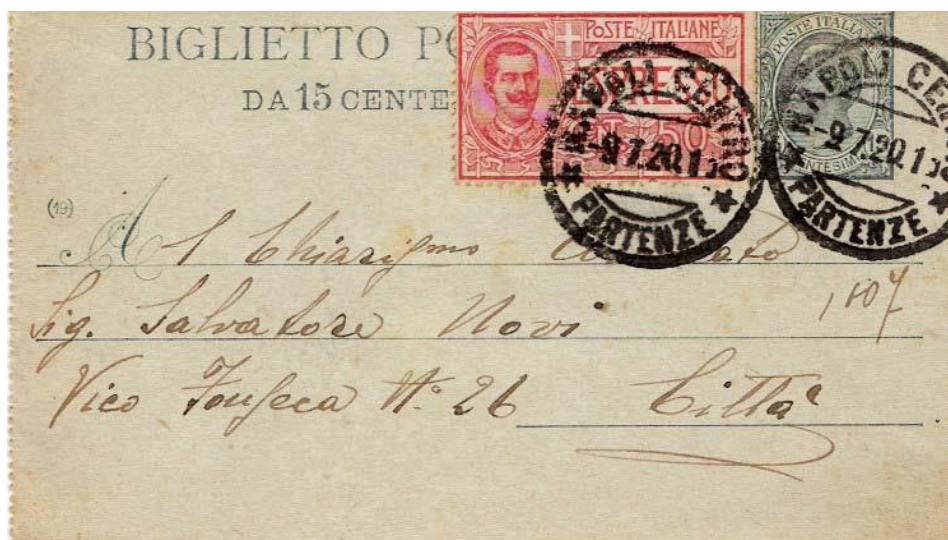 BIGLIETTO PO
DA 15 CENTE
POSTE ITALIANE
ESPRESSO
50
POSTE ITALIA
NAPOLI CENTRO
-9.7.20.1
PARTENZE
NAPOLI CE
-9.7.20.1
PARTENZE
(19)
Al Chiariſmo
Sig. Salvatore Novi
Vico Fonſeca N.º 26 Città